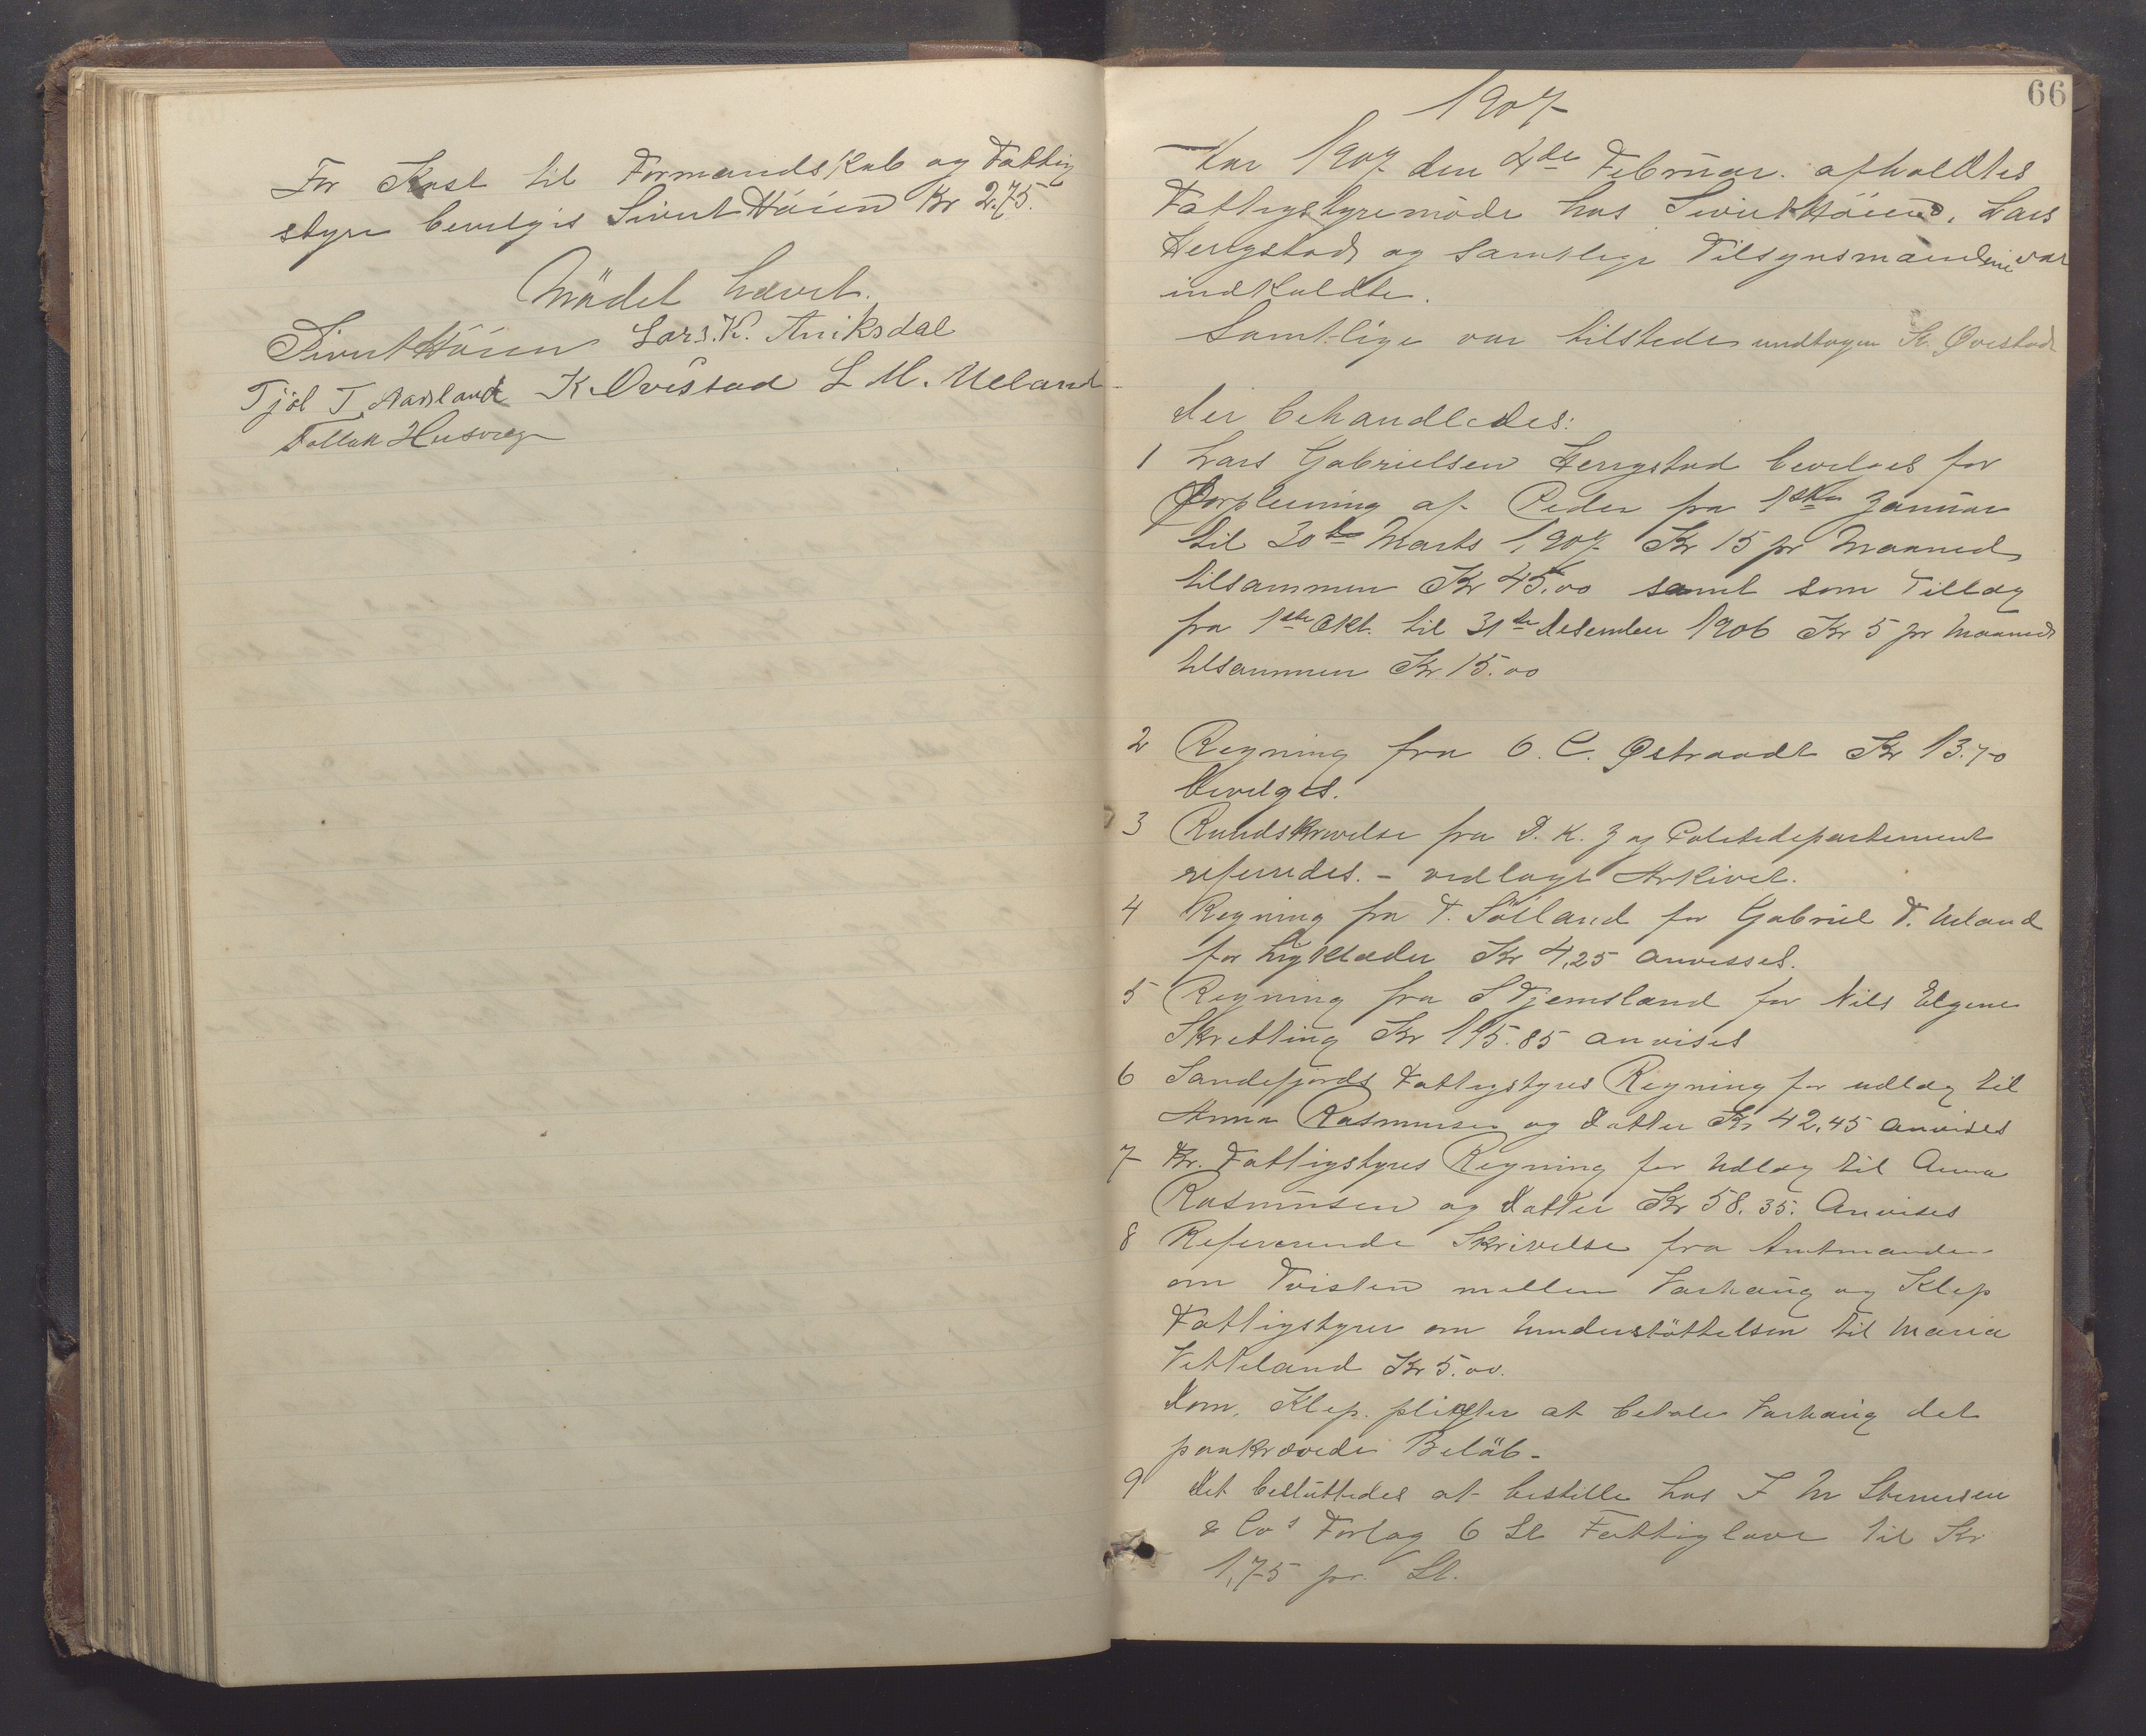 For Kost til Formandskab og Fattig
styre bevilgis Sivert Höien Kr 2.75.
Mödet hævet.
Sivert Höien Lars. K. Aniksdal
Tjöl T. Aarsland K. Ovestad L M. Ueland
Tollak Husveg
66
1907
Aar 1907 den 2de Februar. afholdtes
Fattigstyremöde hos Sivert Höien, Lars
Hengstad og samtlige Tilsynsmændene var
indkaldte.
Samtlige var tilstede undtagen K. Ovestad
der behandledes:
1 Lars Gabrielsen Hengstad bevilges for
Forpleining af Peder fra 1ste Januar
til 30te Marts 1907 Kr 15 pr Maaned
tilsammen Kr 45.00 samt som Tillæg
fra 1ste Okt. til 31te Desember 1906 Kr 5 pr Maaned
tilsammen Kr 15.00
2 Regning fra O. C. Østraadt Kr 13.70
bevilges.
3 Rundskrivelse fra D. K. J og Politidepartement
refereredes. - vedlagt Arkivet.
4 Regning fra T. Sölland for Gabriel T. Ueland
for Ligklæder Kr 4,25 anvisses.
5 Regning fra S Tjemsland for Nils Elgene
Skretting Kr 115.85 anvises
6 Sandefjords Fattigstyres Regning for udlæg til
Anna Rasmussen og Datter Kr 42,45 anvises
7 Kr. Fattigstyres Regning for Udlæg til Anna
Rasmussen og Datter Kr 58.35. Anvises
8 Refererende Skrivelse fra Amtmanden
om Tvisten mellem Varhaug og Klep
Fattigstyrer om Understöttelsen til Maria
Vetteland Kr 5.00.
Dom, Klep. pligter at betale Varhaug det
paakrævede Belöb-
9 Det besluttedes at bestille hos J M Stenersen
& Cos Forlag 6 St Fattiglove til Kr
1,75 pr. St.